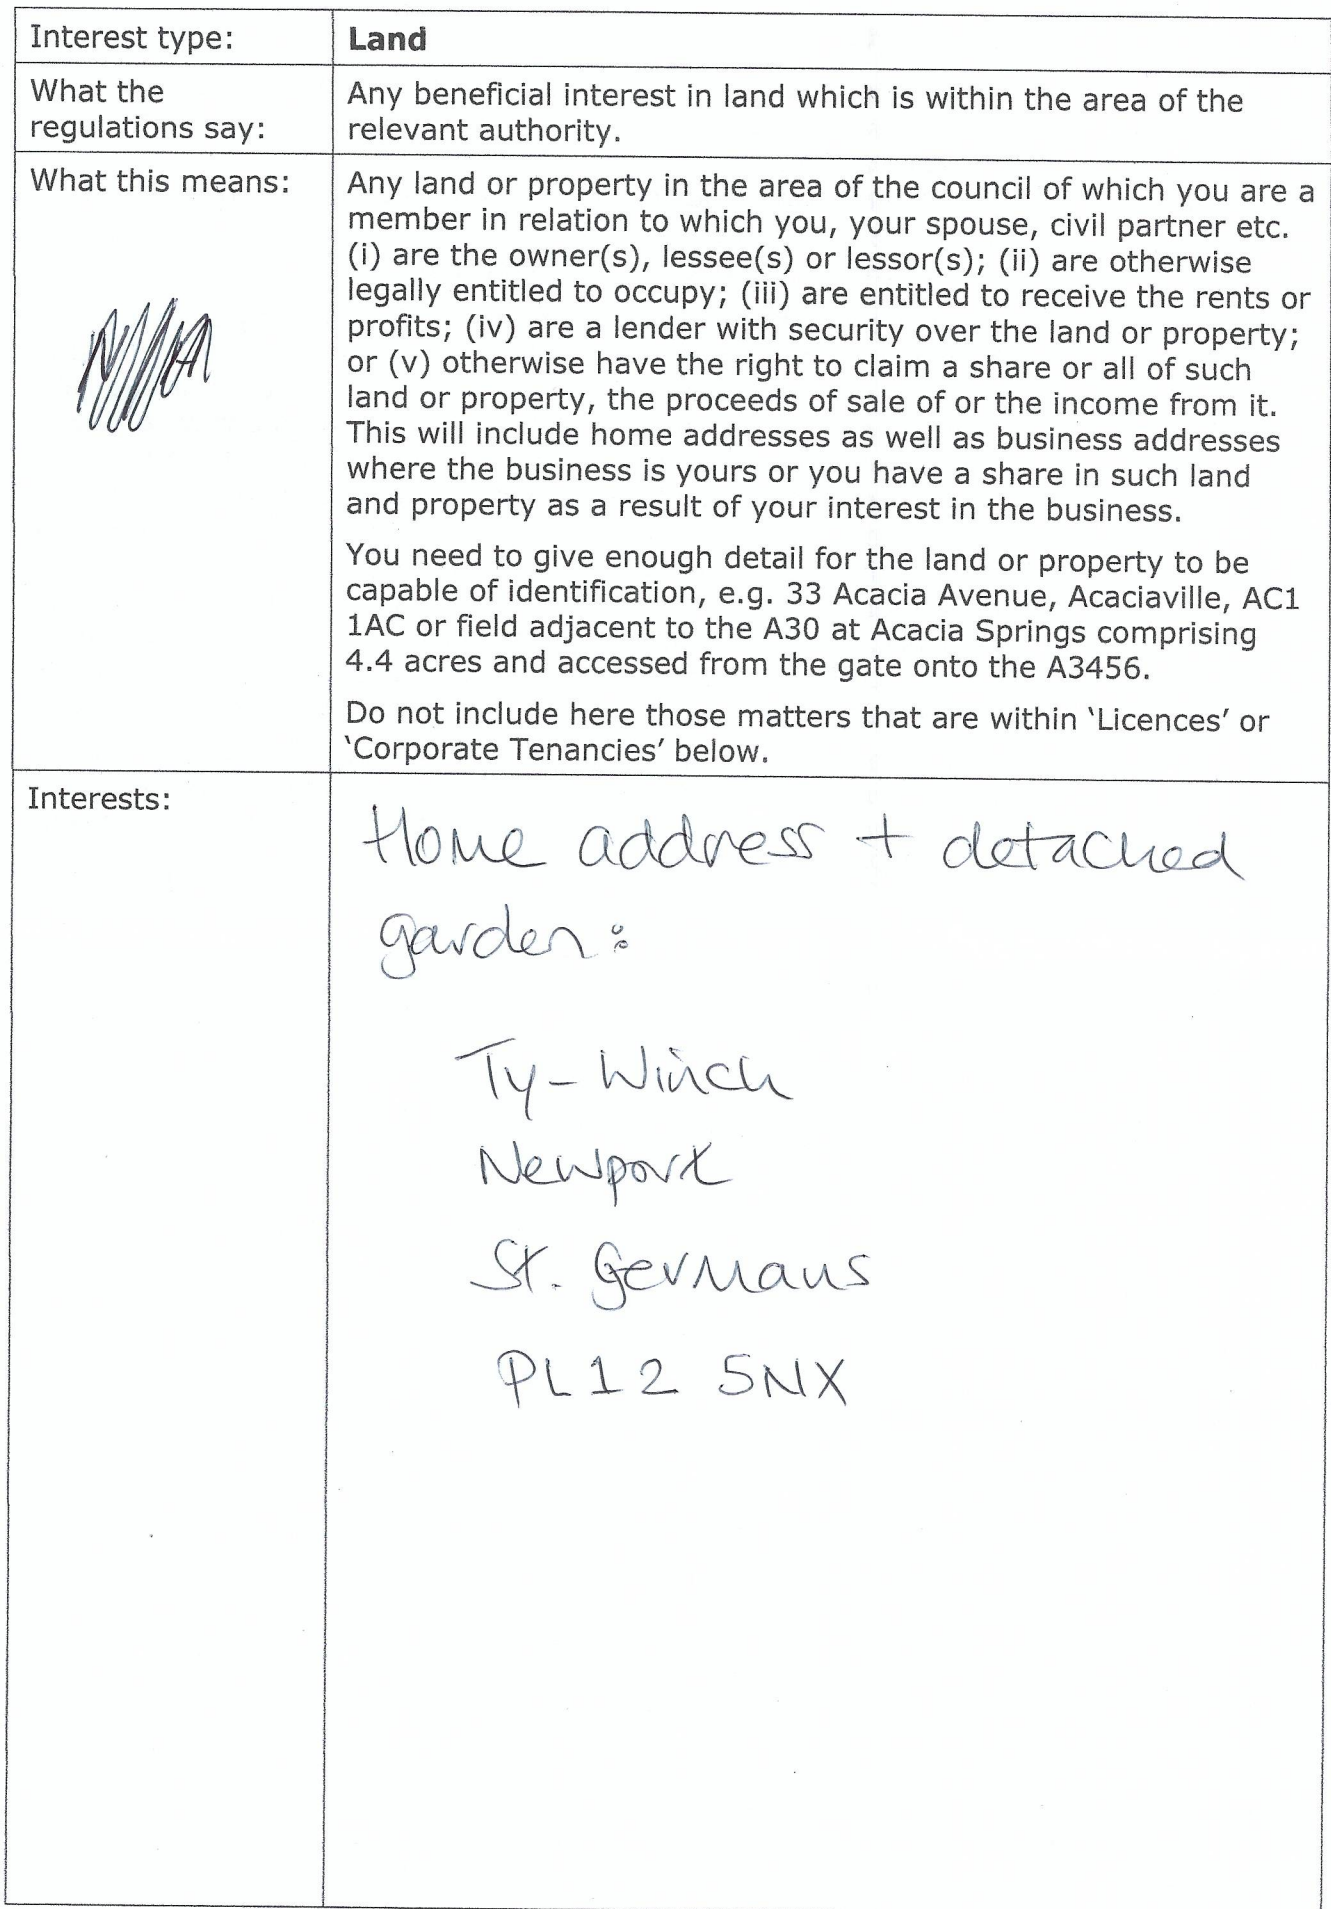 Interest type:
Land
What the
regulations say:
Any beneficial interest in land which is within the area of the
relevant authority.
What this means:
Any land or property in the area of the council of which you are a
member in relation to which you, your spouse, civil partner etc.
(i) are the owner(s), lessee(s) or lessor(s); (ii) are otherwise
legally entitled to occupy; (iii) are entitled to receive the rents or
profits; (iv) are a lender with security over the land or property;
or (v) otherwise have the right to claim a share or all of such
land or property, the proceeds of sale of or the income from it.
This will include home addresses as well as business addresses
where the business is yours or you have a share in such land
and property as a result of your interest in the business.
You need to give enough detail for the land or property to be
capable of identification, e.g. 33 Acacia Avenue, Acaciaville, AC1
1AC or field adjacent to the A30 at Acacia Springs comprising
4.4 acres and accessed from the gate onto the A3456.
Do not include here those matters that are within ‘Licences’ or
‘Corporate Tenancies’ below.
Interests:
Home address + detached
garden:
Ty-Winch
Newport
St. Germans
PL12 5NX